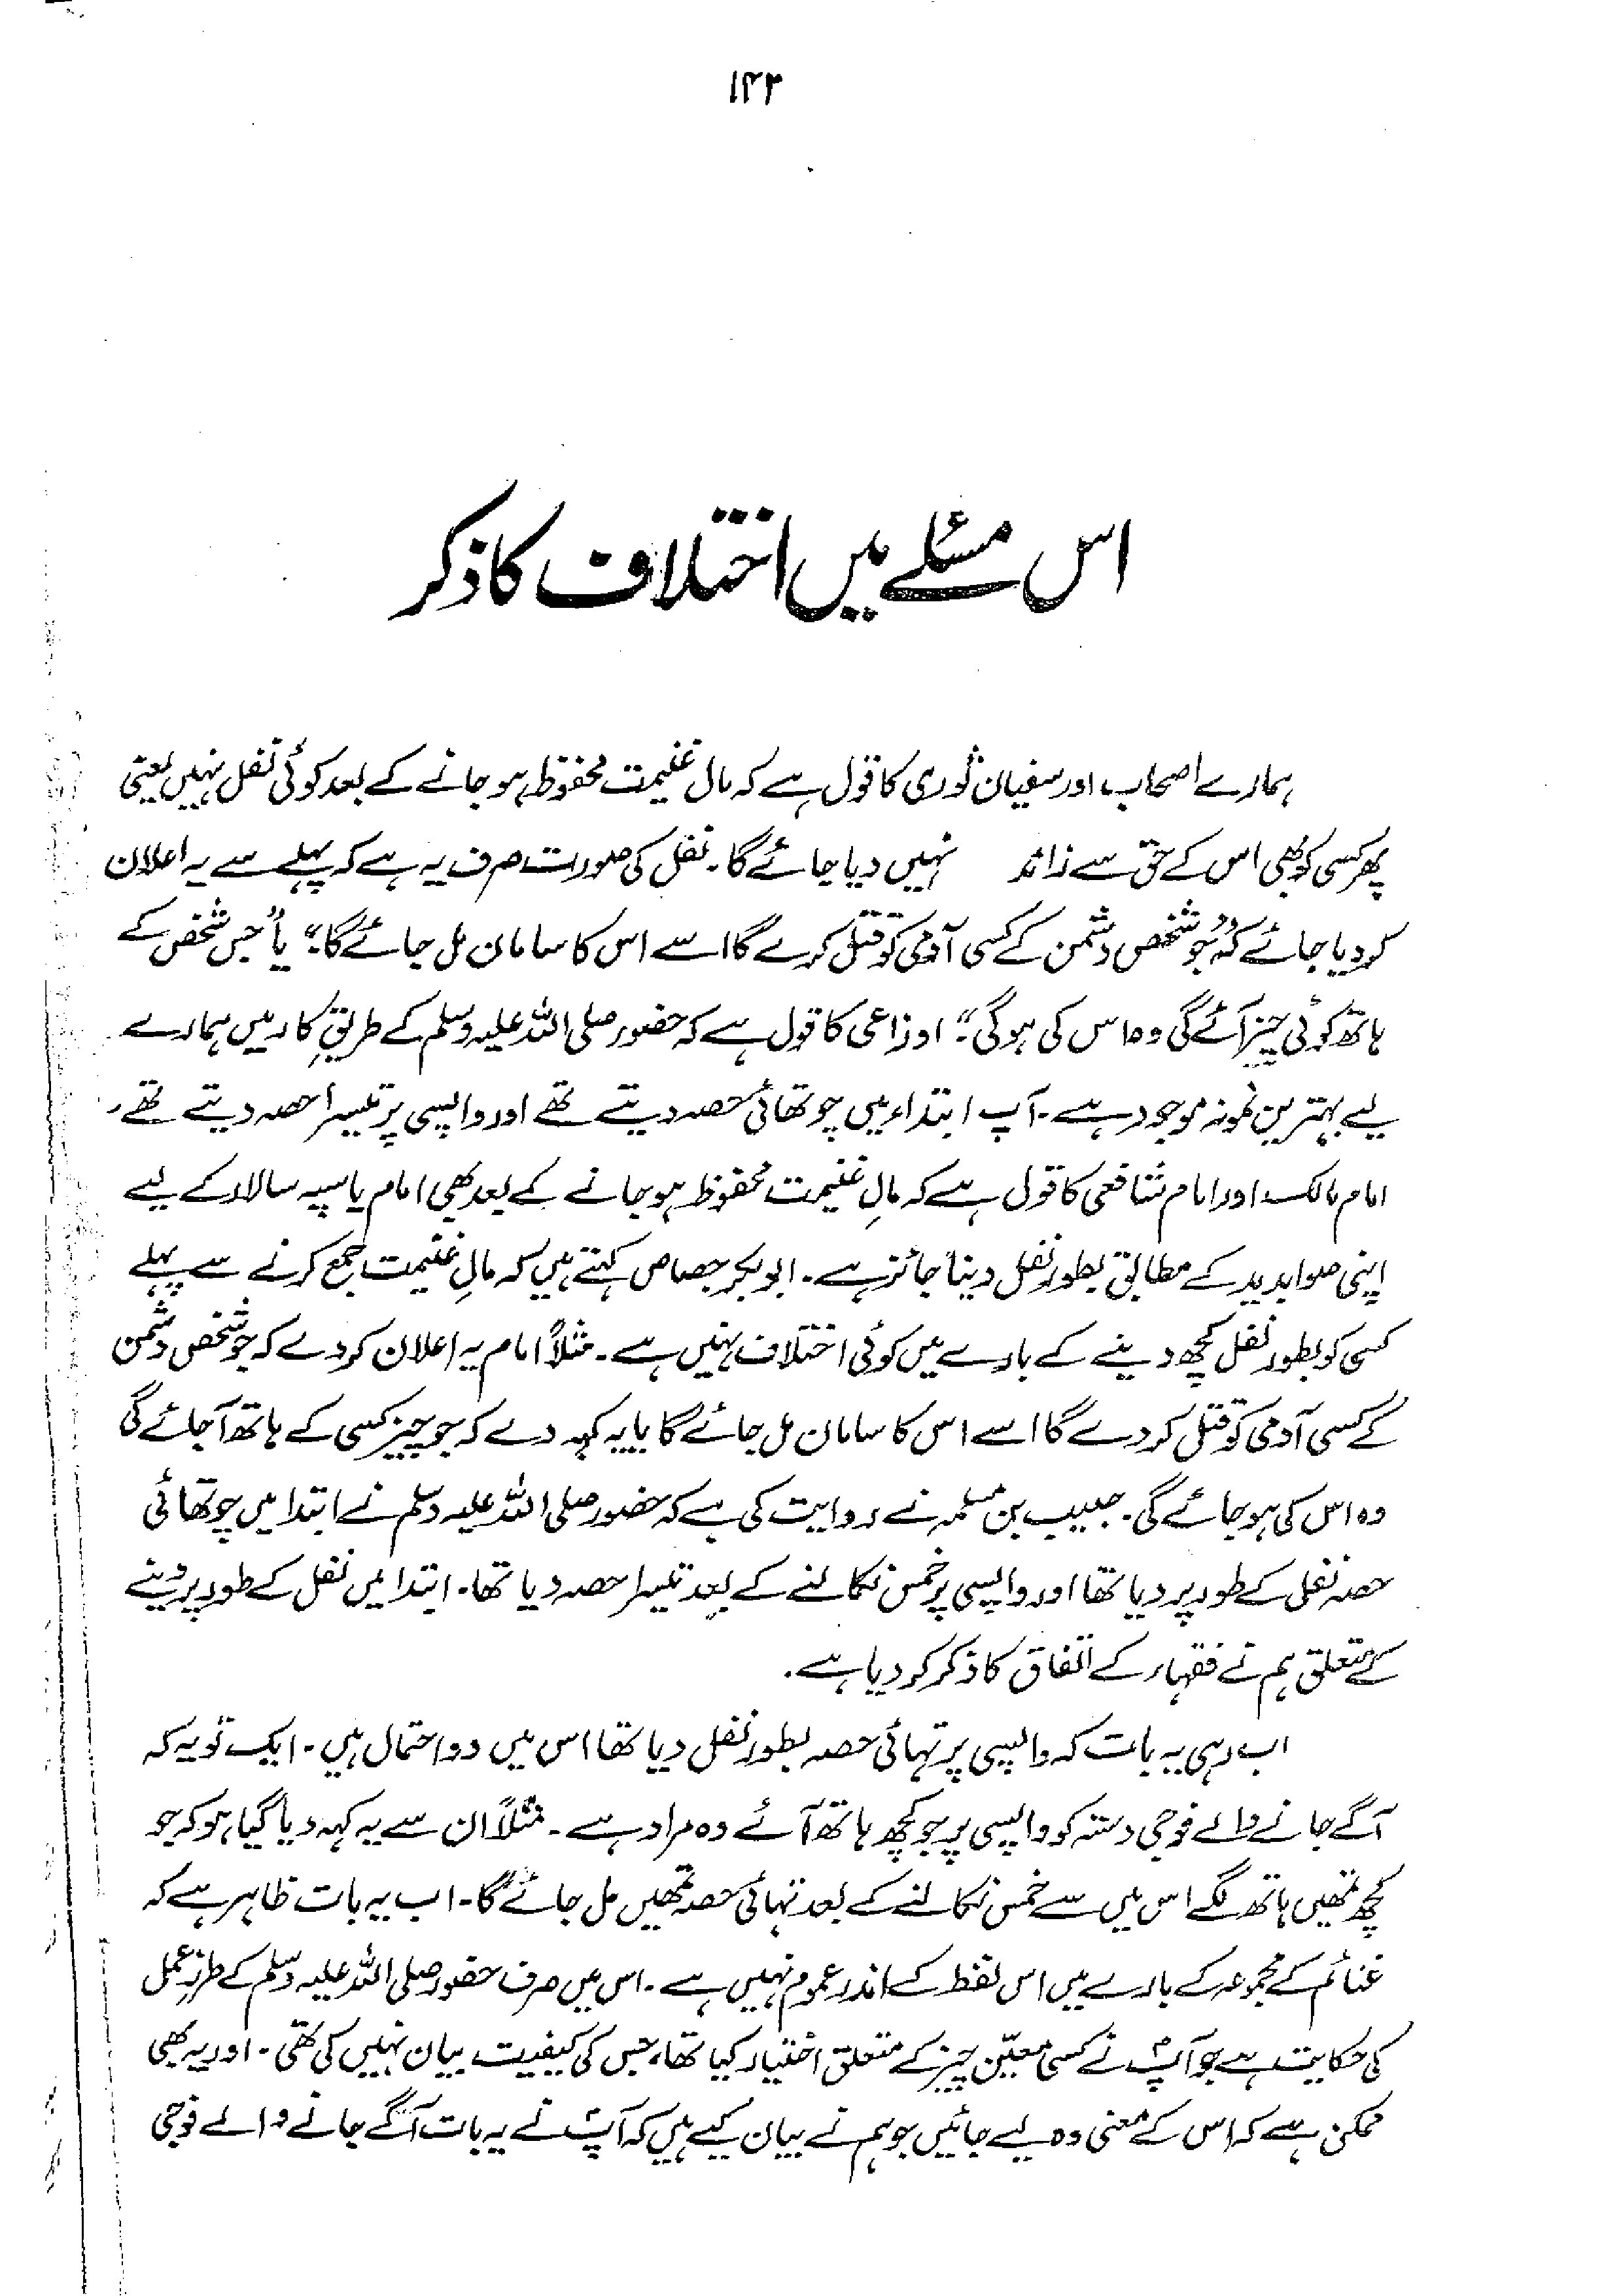 ۱۴۲
اس مسئلے میں اختلاف کا ذکر
ہمارے اصحاب اور سفیان ثوری کا قول ہے کہ مال غنیمت محفوظ ہو جانے کے بعد کوئی نفل نہیں یعنی
پھر کسی کو بھی اس کے حق سے زائد نہیں دیا جائے گا۔ نفل کی صورت صرف یہ ہے کہ پہلے سے یہ اعلان
کر دیا جائے کہ "جو شخص دشمن کے کسی آدمی کو قتل کرے گا اسے اس کا سامان مل جائے گا۔" یا "جس شخص کے
ہاتھ کوئی چیز آئے گی وہ اس کی ہو گی۔" اوزاعی کا قول ہے کہ حضور صلی اللہ علیہ وسلم کے طریقِ کار میں ہمارے
لیے بہترین نمونہ موجود ہے۔ آپ ابتداء میں چوتھائی حصہ دیتے تھے اور واپسی پر تیسرا حصہ دیتے تھے،
امام مالک اور امام شافعی کا قول ہے کہ مالِ غنیمت محفوظ ہو جانے کے بعد بھی امام یا سپہ سالار کے لیے
اپنی صوابدید کے مطابق بطور نفل دینا جائز ہے۔ ابوبکر جصاص کہتے ہیں کہ مالِ غنیمت جمع کرنے سے پہلے
کسی کو بطور نفل کچھ دینے کے بارے میں کوئی اختلاف نہیں ہے۔ مثلاً امام یہ اعلان کر دے کہ جو شخص دشمن
کے کسی آدمی کو قتل کر دے گا اسے اس کا سامان مل جائے گا یا یہ کہہ دے کہ جو چیز کسی کے ہاتھ آ جائے گی
وہ اس کی ہو جائے گی۔ حبیب بن مسلمہ نے روایت کی ہے کہ حضور صلی اللہ علیہ وسلم نے ابتدا میں چوتھائی
حصہ نفل کے طور پر دیا تھا اور واپسی پر خمس نکالنے کے بعد تیسرا حصہ دیا تھا۔ ابتدا میں نفل کے طور پر دینے
کے متعلق ہم نے فقہاء کے اتفاق کا ذکر کر دیا ہے۔
اب رہی یہ بات کہ واپسی پر تہائی حصہ بطور نفل دیا تھا اس میں دو احتمال ہیں۔ ایک تو یہ کہ
آگے جانے والے فوجی دستہ کو واپسی پر جو کچھ ہاتھ آئے وہ مراد ہے۔ مثلاً ان سے یہ کہہ دیا گیا ہو کہ جو
کچھ تمھیں ہاتھ لگے اس میں سے خمس نکالنے کے بعد تہائی حصہ تمھیں مل جائے گا۔ اب یہ بات ظاہر ہے کہ
غنائم کے مجموعہ کے بارے میں اس لفظ کے اندر عموم نہیں ہے۔ اس میں صرف حضور صلی اللہ علیہ وسلم کے طرزِ عمل
کی حکایت ہے جو آپؐ نے کسی معیّن چیز کے متعلق اختیار کیا تھا، جس کی کیفیت بیان نہیں کی تھی۔ اور یہ بھی
ممکن ہے کہ اس کے معنی وہ لیے جائیں جو ہم نے بیان کیے ہیں کہ آپؐ نے یہ بات آگے جانے والے فوجی